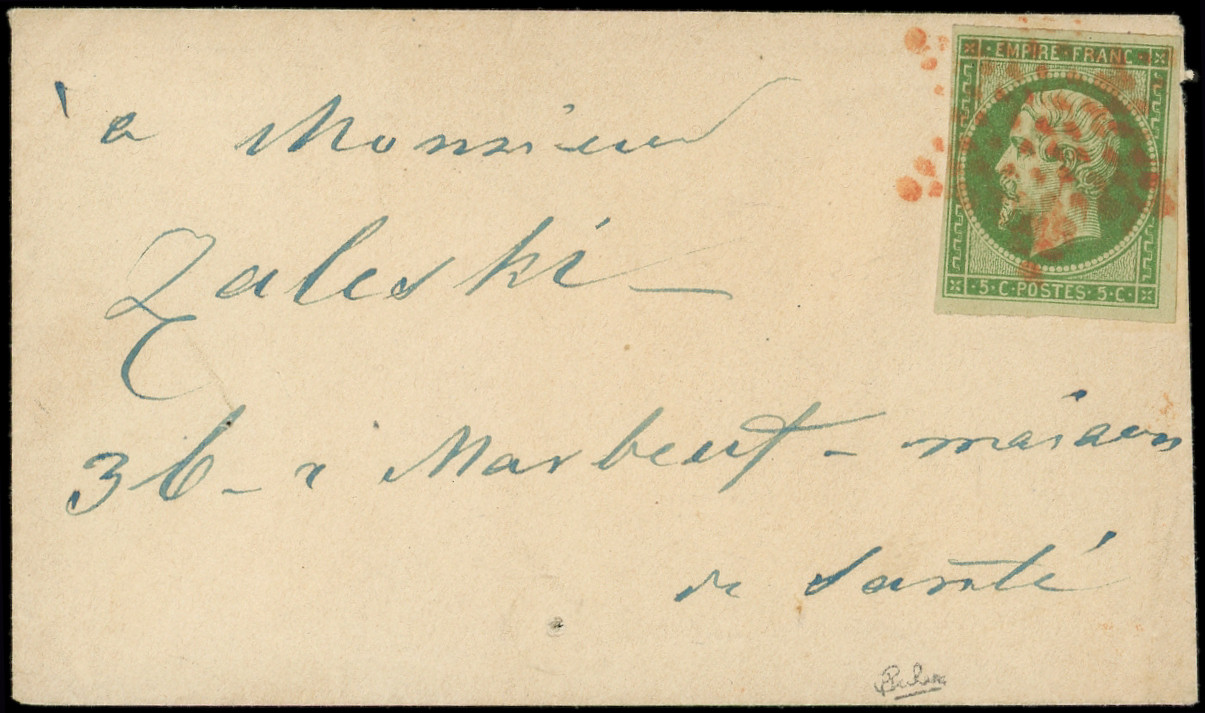 EMPIRE·FRANC
·5·C·POSTES·5·C·
à Monsieur
Zaleski –
36 – r Marbeuf – maison
de santé